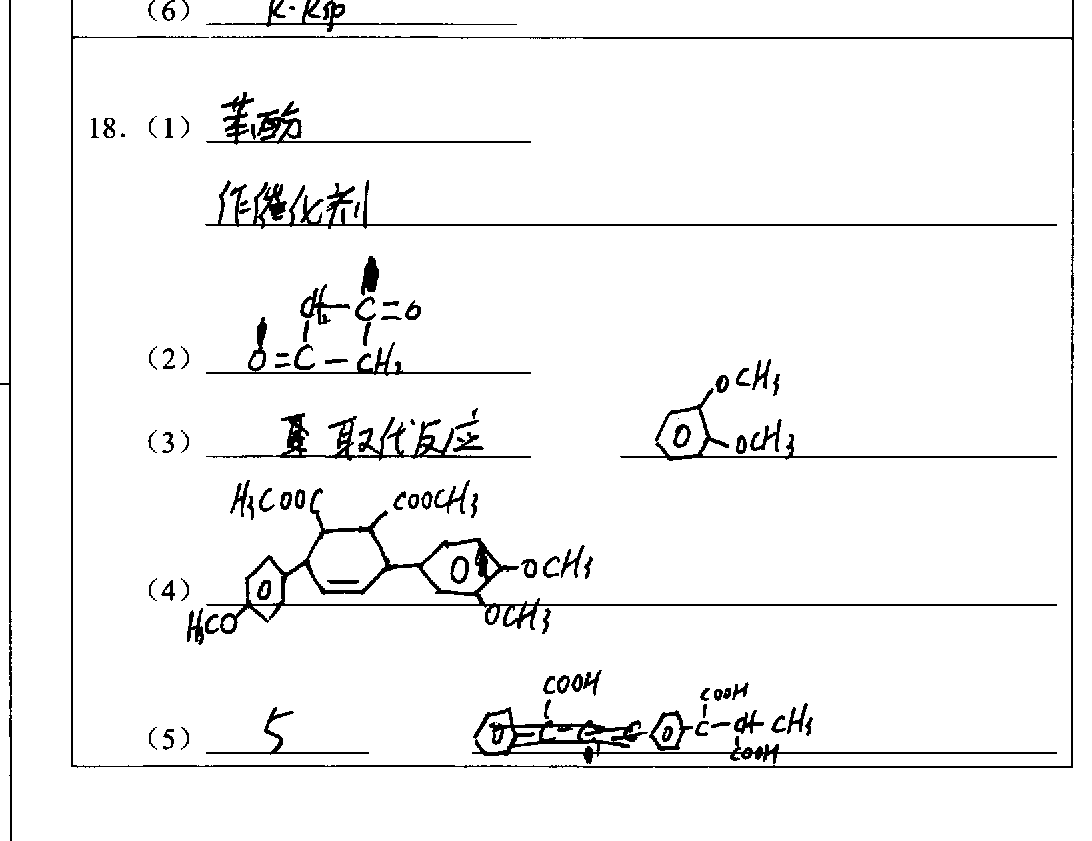 (6) K·Ksp
18. (1) 苯酚
作催化剂
CH₂—C=O
(2) O=C—CH₂
OCH₃
(3) 取代反应 OCH₃
H₃COOC COOCH₃
OCH₃
(4)
H₃CO OCH₃
COOH COOH
(5) 5 C—CH—CH₃
COOH